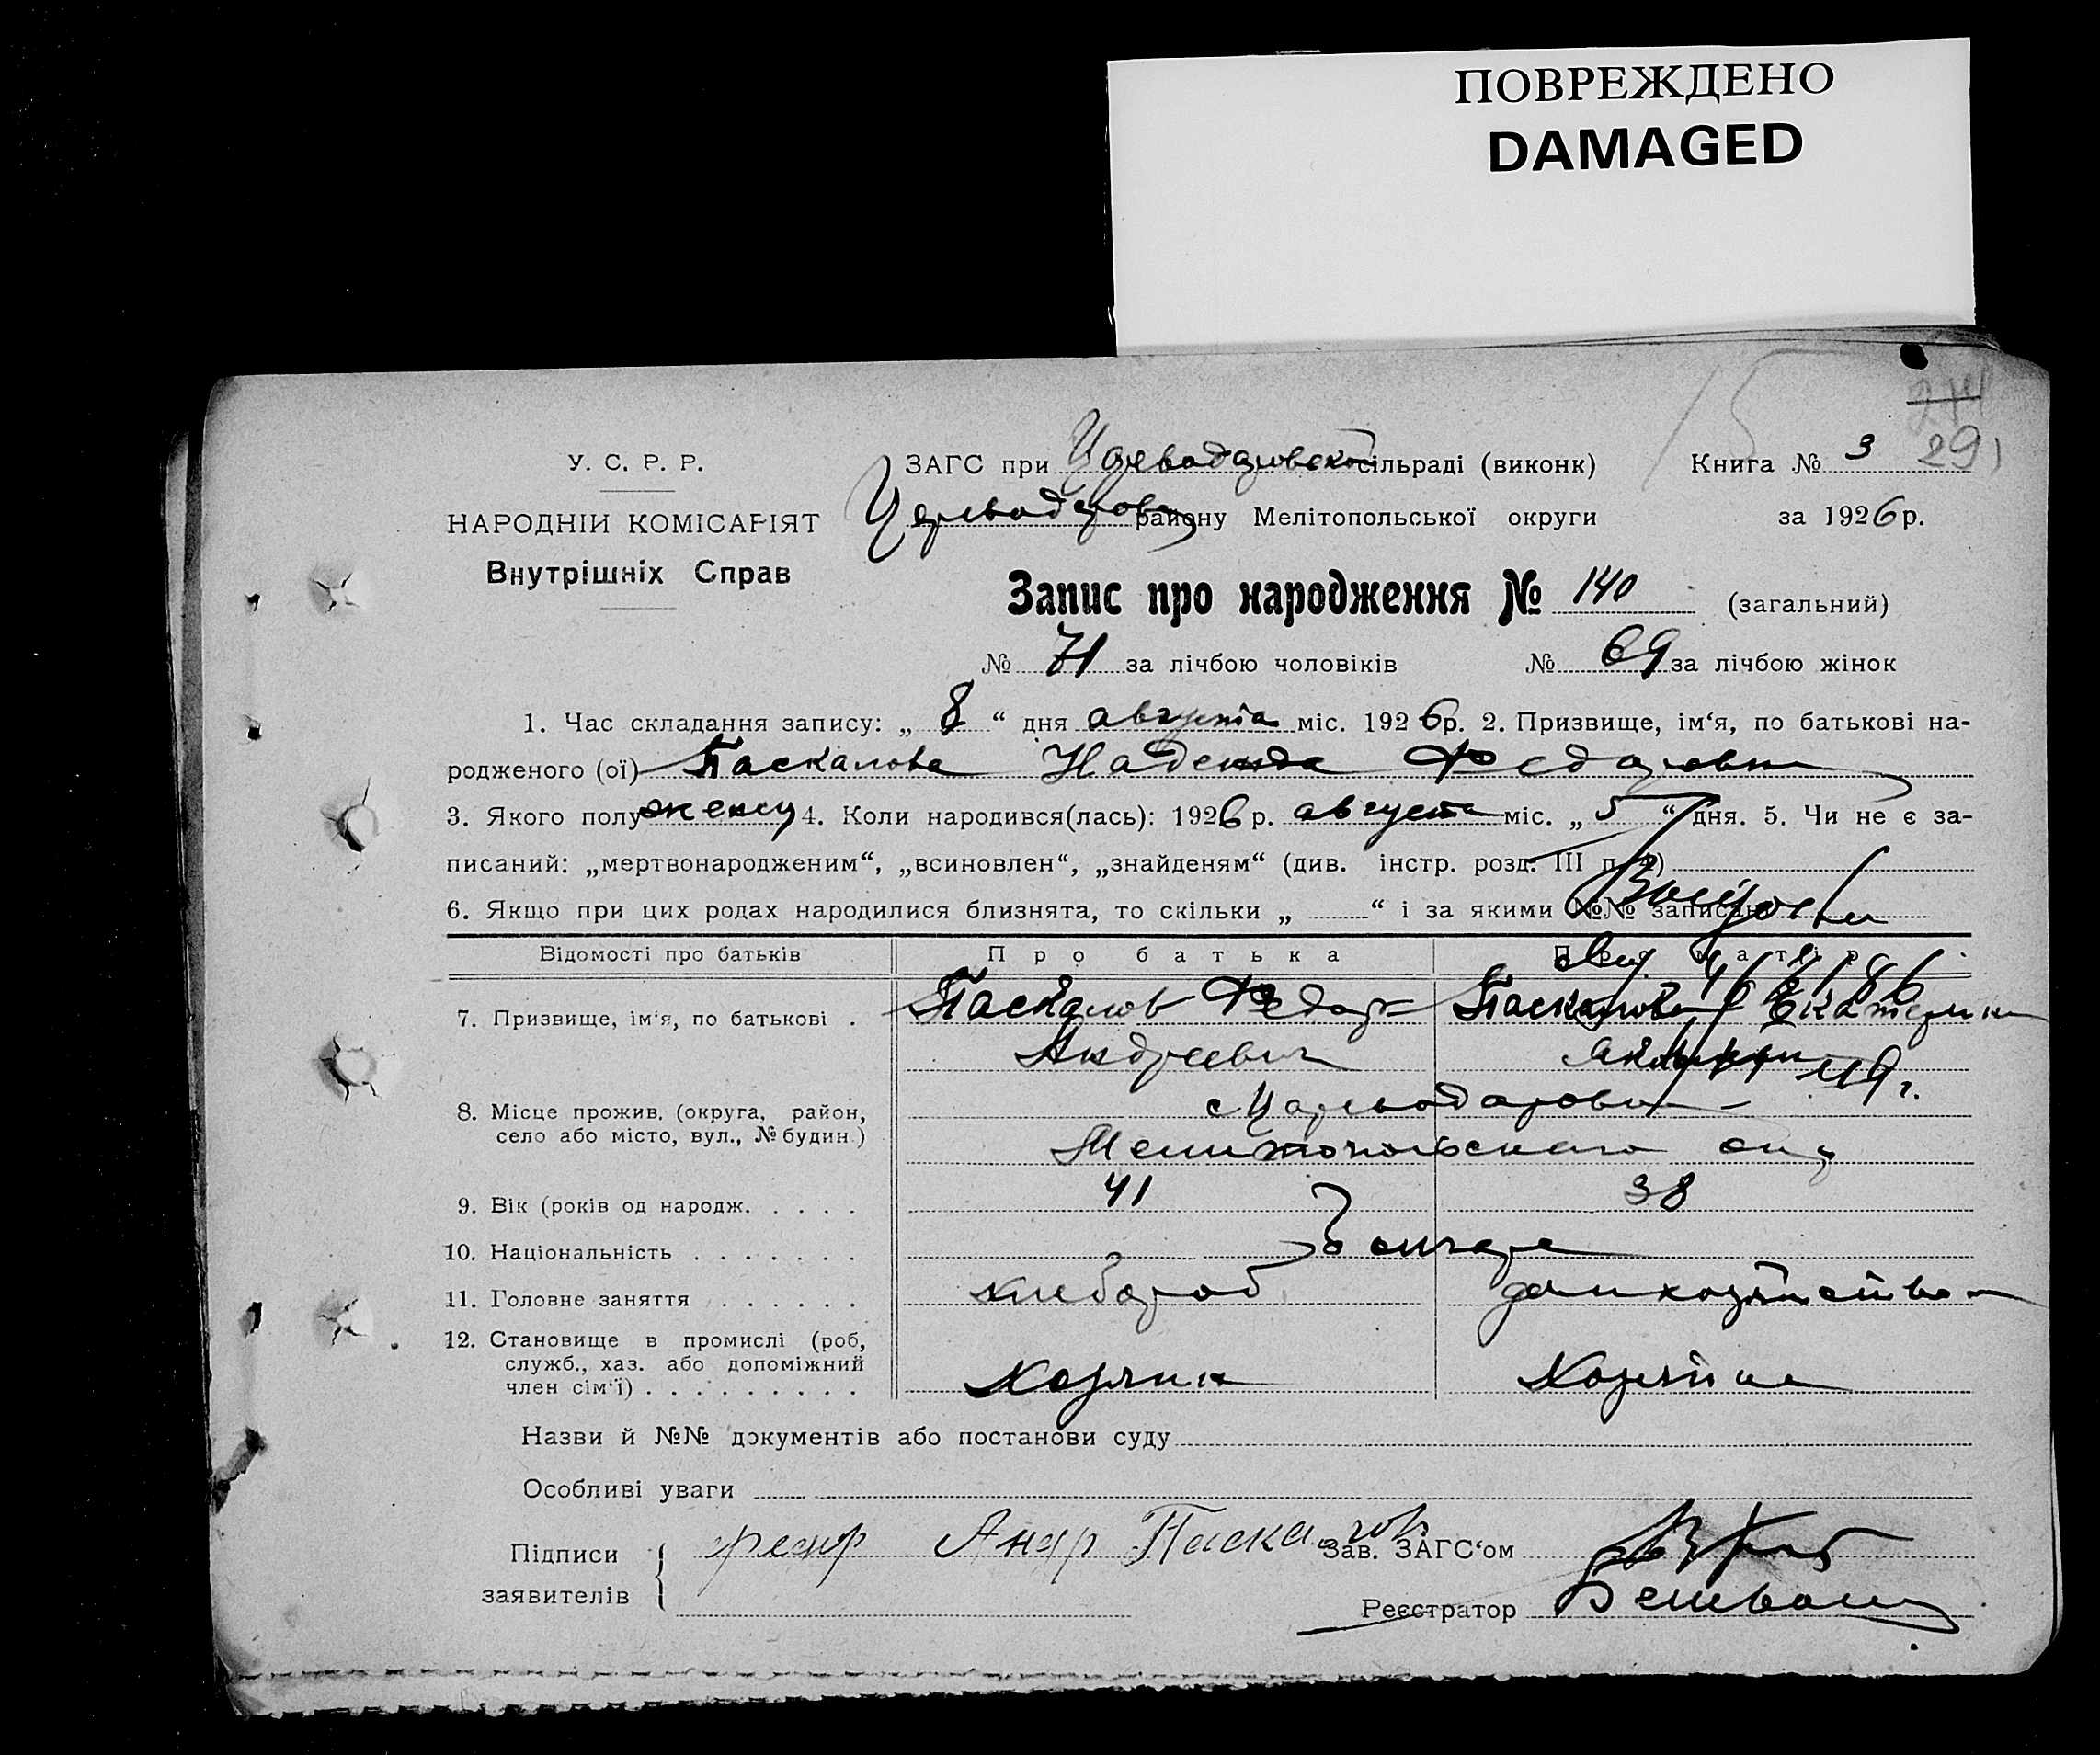 ПОВРЕЖДЕНО
DAMAGED
У. С. Р. Р.
НАРОДНІЙ КОМІСАРІЯТ
Внутрішніх Справ
ЗАГС при Царевадаровской сільраді (виконк)
Книга № 3
291
району Мелітопольської округи
за 1926 р.
Запис про народження № 140 (загальний)
№ 71 за лічбою чоловіків № 69 за лічбою жінок
1. Час складання запису: „ 8 “ дня августа міс. 1926 р. 2. Призвище, ім‘я, по батькові на-
родженого (ої) Паскалова Надежда Федоровна
3. Якого полу женск 4. Коли народився(лась): 1926 р. августа міс. „ 5 “ дня. 5. Чи не є за-
писаний: „мертвонародженим“, „всиновлен“, „знайденям“ (див. інстр. розд. III п. 4)
6. Якщо при цих родах народилися близнята, то скільки „ “ і за якими №№ записані
Відомості про батьків Про батька Про матір
7. Призвище, ім‘я, по батькові . Паскалов Федор Паскалова Екатерина
Андреевич
49 г.
8. Місце прожив. (округа, район, с Цареводаровка
село або місто, вул., № будин.) Мелитопольскаго окр
9. Вік (років од народж. . . . . 41 38
10. Національність . . . . . . . Болгаре
11. Головне заняття . . . . . . хлебороб домхозяйство
12. Становище в промислі (роб,
служб., хаз. або допоміжний
член сім‘ї) . . . . . . . . . Хозяин Хозяйка
Назви й №№ документів або постанови суду
Особливі уваги
Підписи
заявителів
Федр Андр Паскалов
Зав. ЗАГС‘ом
Реєстратор